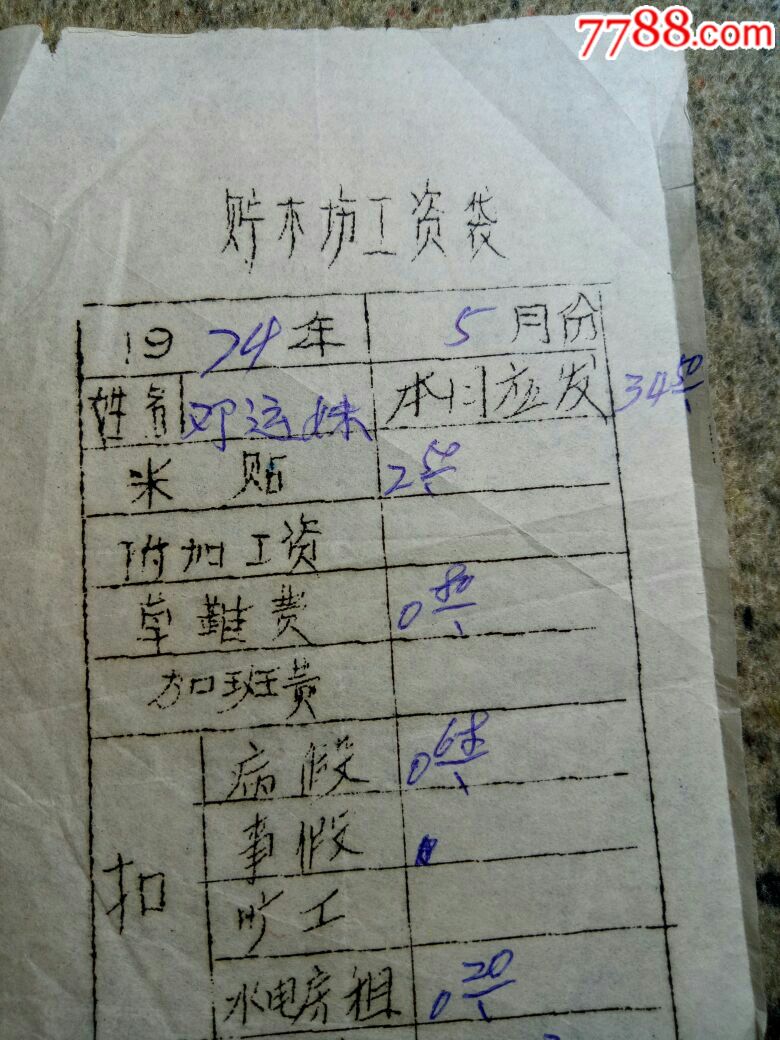 7788.com
贮木场工资袋
1974年 5月份
姓名 邓运妹 本月应发 34 50
米贴 2 50
附加工资
草鞋费 0 80
加班费
扣
病假 0
事假
旷工
水电房租 0 20